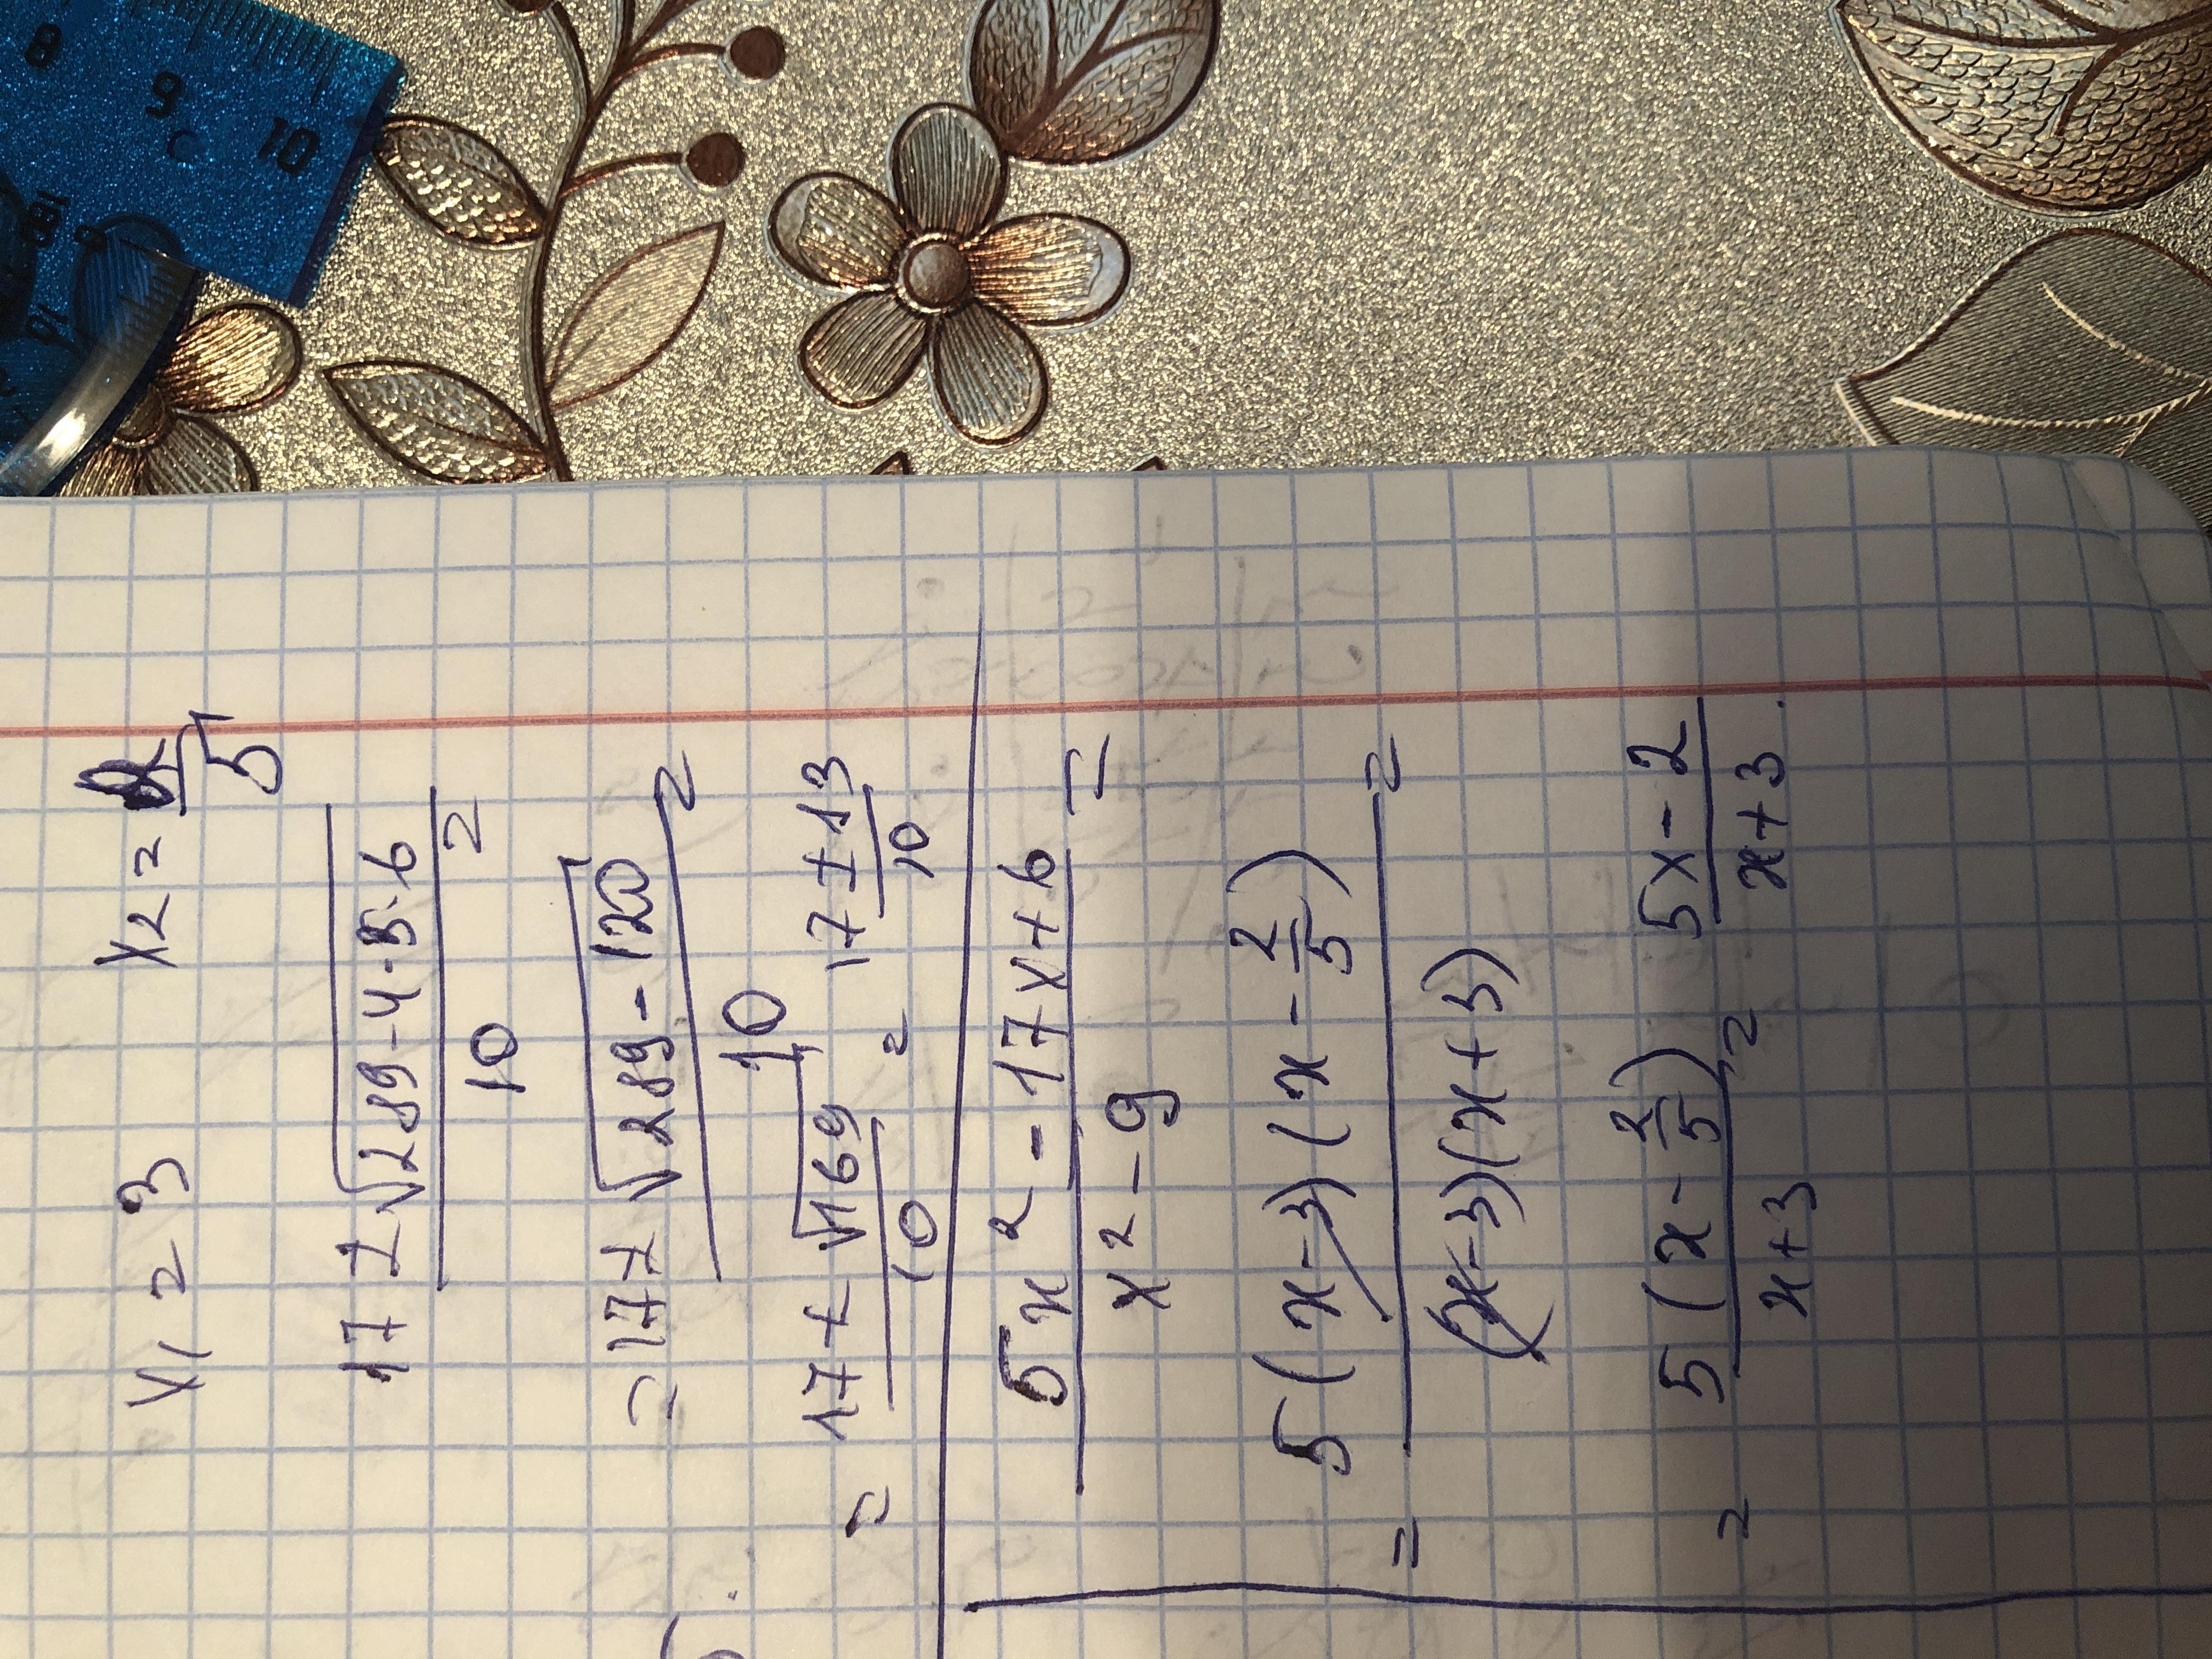 x₁ = 3 x₂ = 2/5
(17 ± √(289 - 4 · 5 · 6))/10 =
= (17 ± √(289 - 120))/10 =
= (17 ± √169)/10 = (17 ± 13)/10
(5x² - 17x + 6)/(x² - 9) =
= (5(x - 3)(x - 2/5))/((x - 3)(x + 3)) =
= (5(x - 2/5))/(x + 3) = (5x - 2)/(x + 3).
8 9 10